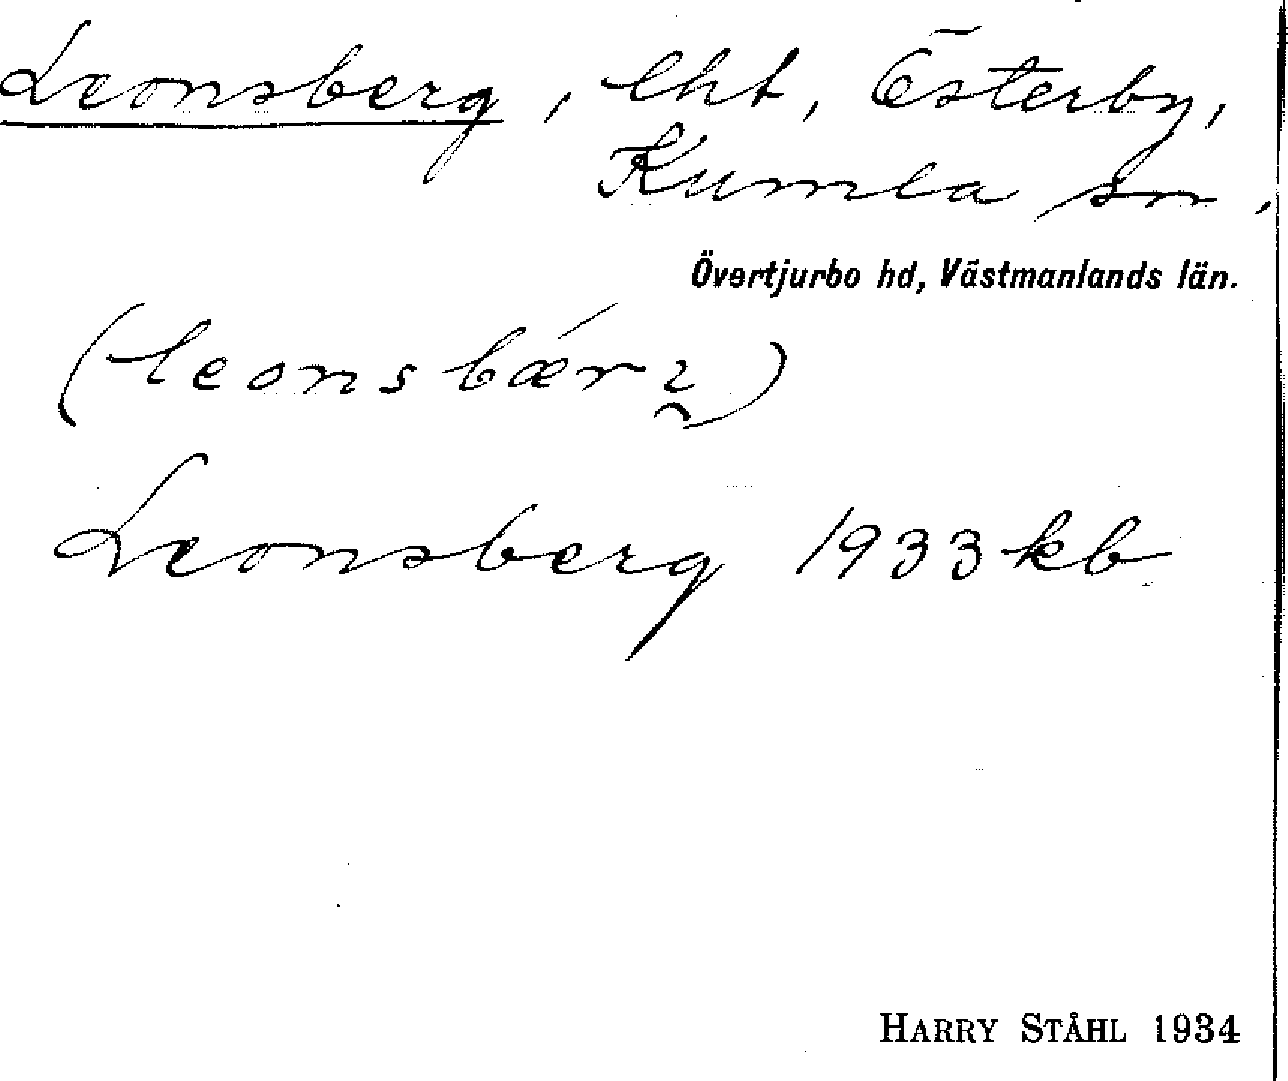 Leonsberg, lht, Österby,
Kumla sn.
Övertjurbo hd, Västmanlands län.
Leonsberg 1933 kb
HARRY STÅHL 1934